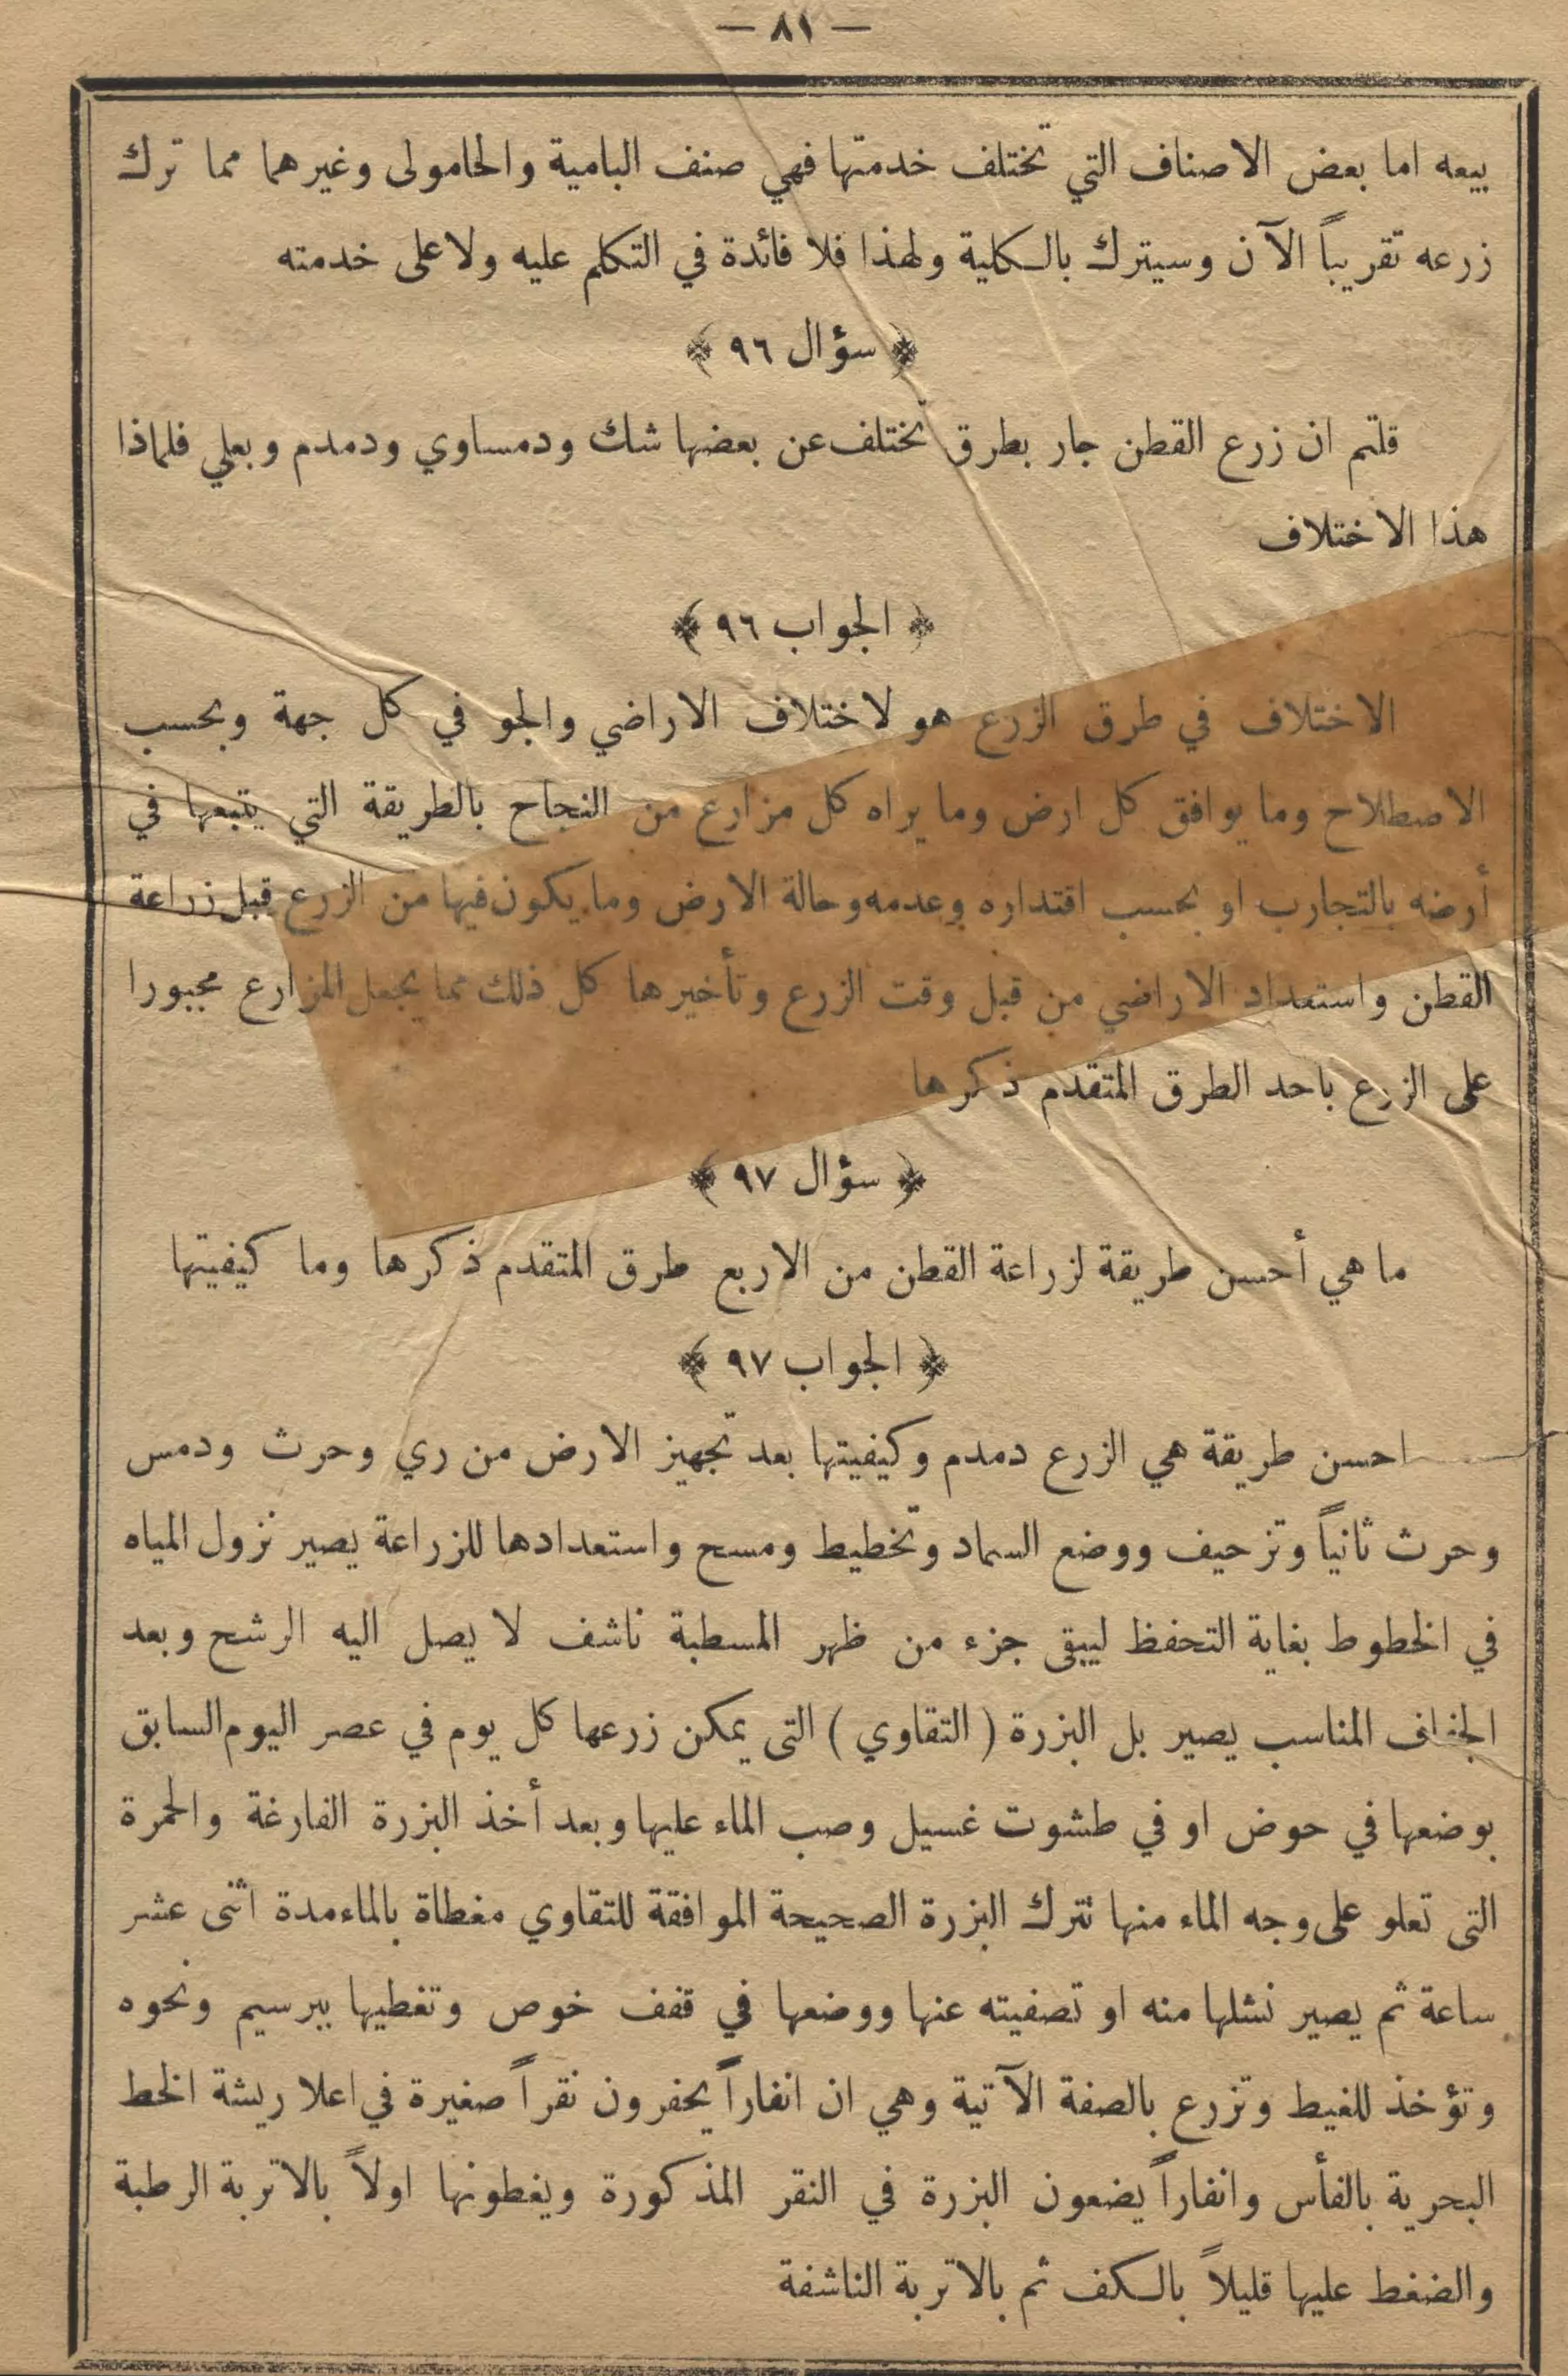 — ٨١ —
بيعه اما بعض الاصناف التي تختلف خدمتها فهي صنف البامية والحامولى وغيرهما مما ترك
زرعه تقريباً الآن وسيترك بالكلية ولهذا فلا فائدة في التكلم عليه ولا على خدمته
﴿ سؤال ٩٦ ﴾
قلتم ان زرع القطن جار بطرق تختلف عن بعضها شك ودمساوي ودمدم وبعلي فلماذا
هذا الاختلاف
﴿ الجواب ٩٦ ﴾
الاختلاف في طرق الزرع هو لاختلاف الاراضي والجو في كل جهة وبحسب
الاصطلاح وما يوافق كل ارض وما يراه كل مزارع من النجاح بالطريقة التي يتبعها في
أرضه بالتجارب او بحسب اقتداره وعدمه وحالة الارض وما يكون فيها من الزرع قبل زراعة
القطن واستعداد الاراضي من قبل وقت الزرع وتأخيرها كل ذلك مما يجعل المزارع مجبورا
على الزرع باحد الطرق المتقدم ذكرها
﴿ سؤال ٩٧ ﴾
ما هي أحسن طريقة لزراعة القطن من الاربع طرق المتقدم ذكرها وما كيفيتها
﴿ الجواب ٩٧ ﴾
احسن طريقة هي الزرع دمدم وكيفيتها بعد تجهيز الارض من ري وحرث ودمس
وحرث ثانياً وتزحيف ووضع السماد وتخطيط ومسح واستعدادها للزراعة يصير نزول المياه
في الخطوط بغاية التحفظ ليبقى جزء من ظهر المسطبة ناشف لا يصل اليه الرشح وبعد
الجفاف المناسب يصير بل البزرة ( التقاوي ) التى يمكن زرعها كل يوم في عصر اليوم السابق
بوضعها في حوض او في طشوت غسيل وصب الماء عليها وبعد أخذ البزرة الفارغة والحمرة
التى تعلو على وجه الماء منها تترك البزرة الصحيحة الموافقة للتقاوي مغطاة بالماء مدة اثنى عشر
ساعة ثم يصير نشلها منه او تصفيته عنها ووضعها في قفف خوص وتغطيها ببرسيم ونحوه
وتؤخذ للغيط وتزرع بالصفة الآتية وهي ان انفاراً يحفرون نقراً صغيرة في اعلا ريشة الخط
البحرية بالفأس وانفاراً يضعون البزرة في النقر المذكورة ويغطونها اولاً بالاتربة الرطبة
والضغط عليها قليلاً بالكف ثم بالاتربة الناشفة